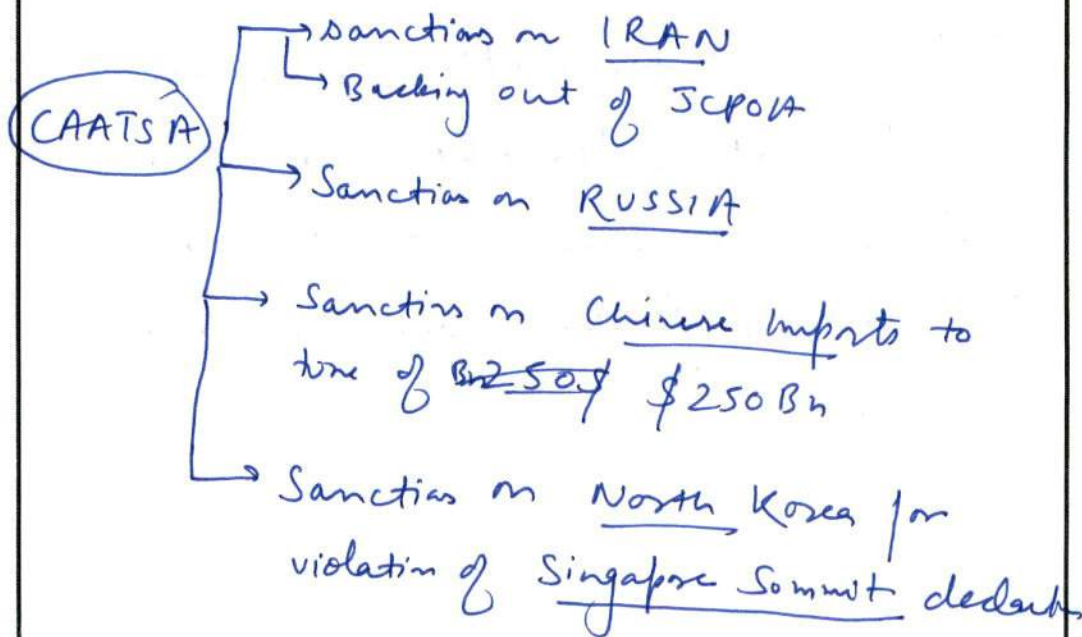 sanctions on IRAN
Backing out of JCPOA
CAATSA
Sanctions on RUSSIA
Sanctins on Chinese Imports to
tone of Bn250$ $250Bn
Sanctias on North Korea for
violatin of Singapore Sommit